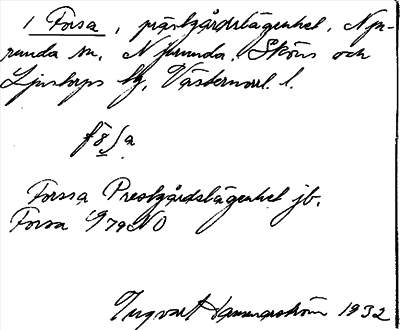 1 Forsa, prästgårdslägenhet, Nju-
runda sn, Njurunda, Sköns och
Ljustorps tg, Västernorrl. l.
Forssa Prestgårdslägenhet jb.
Forsa 9/79 NO
Ingvar Hammarström 1932